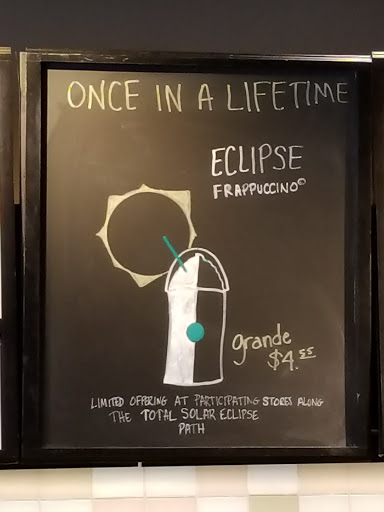 ONCE IN A LIFETIME
ECLIPSE
FRAPPUCCINO©
grande
$4.55
LIMITED OFFERING AT PARTICIPATING STORES ALONG
THE TOTAL SOLAR ECLIPSE
PATH